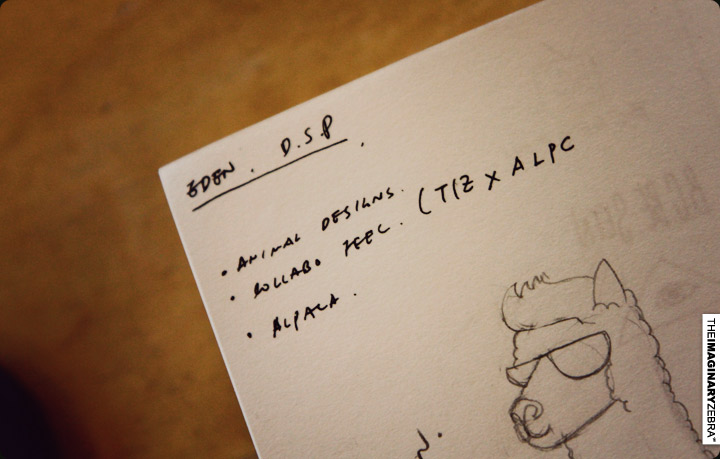 EDEN. D.S.P.
• ANIMAL DESIGNS.
• COLLABO FEEL. (TIZ X ALPC
• ALPACA.
THEIMAGINARYZEBRA™